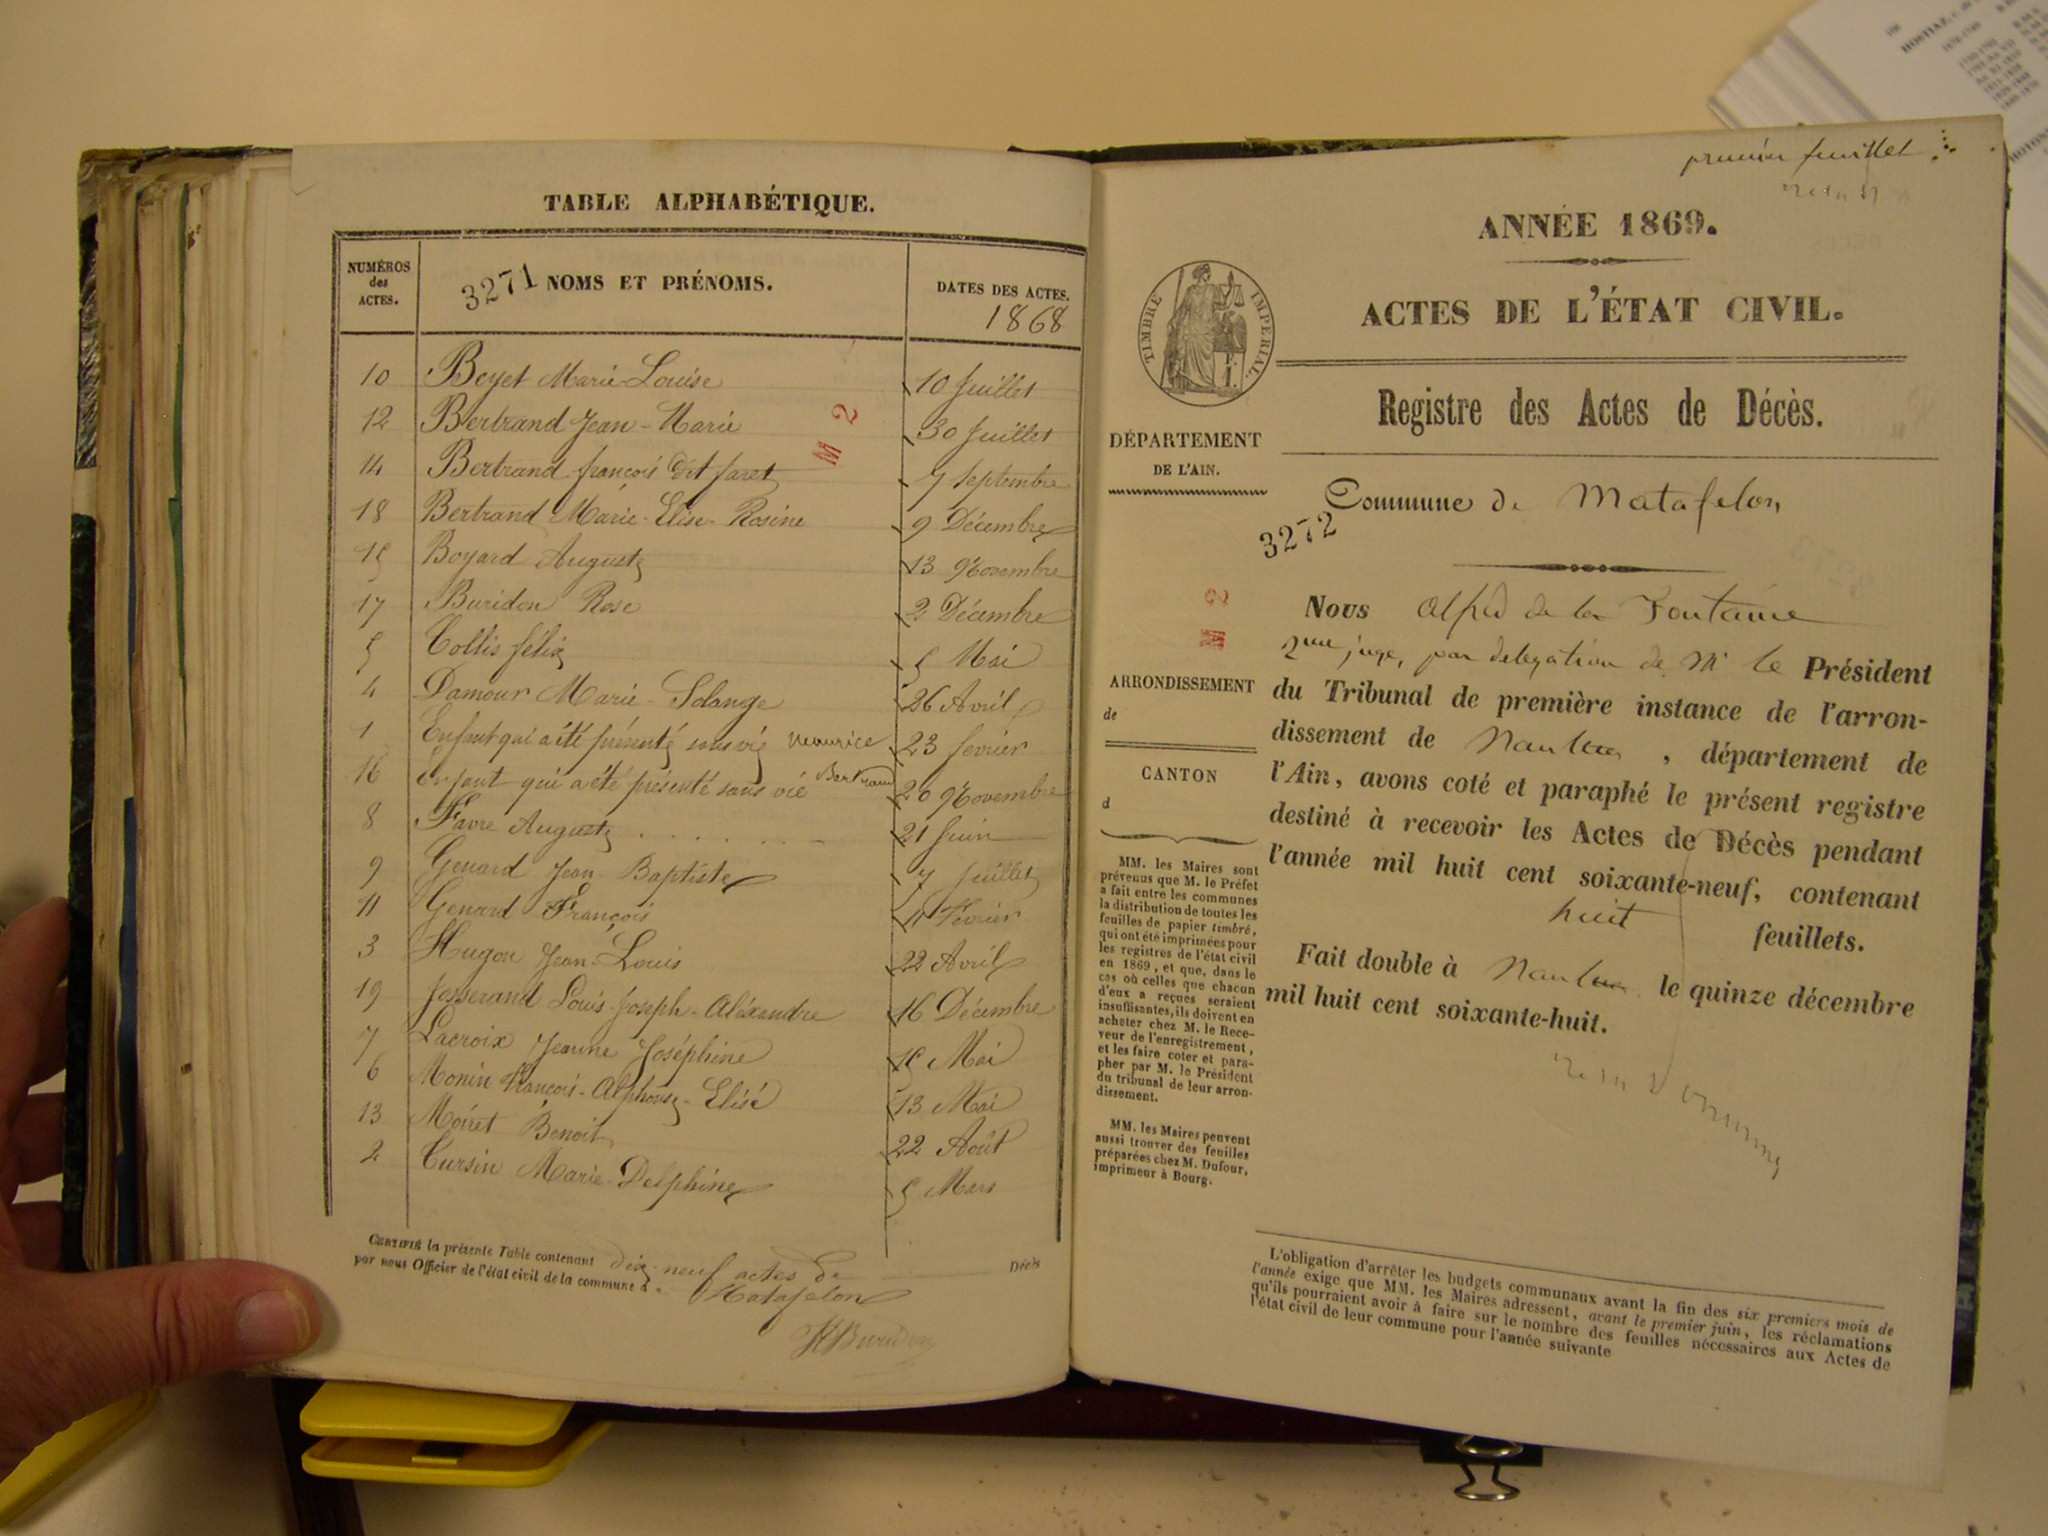 TABLE ALPHABÉTIQUE.
NUMÉROS
des
ACTES.
3271 NOMS ET PRÉNOMS.
DATES DES ACTES.
1868
10 Beyet Marie-Louise 10 Juillet
12 Bertrand Jean-Marie 30 Juillet
14 Bertrand françois dit faret 7 Septembre
18 Bertrand Marie-Elise-Rosine 9 Décembre
15 Boyard Auguste 13 Novembre
17 Buridon Rose 2 Décembre
5 Collis félix 5 Mai
4 Damour Marie-Solange 26 Avril
1 Enfant qui a été présenté sans vie Maurice 23 février
16 Enfant qui a été présenté sans vie Bertrand 20 Novembre
8 Favre Auguste 21 Juin
9 Genard Jean-Baptiste 7 Juillet
11 Genard François 11 Février
3 Hugon Jean-Louis 22 Avril
19 Josserand Louis-Joseph-Aléxandre 16 Décembre
7 Lacroix Jeanne Joséphine Mai
6 Monin françois-Alphonse-Elisé 13 Mai
13 Moiret Benoit 22 Août
2 Cursin Marie-Delphine 5 Mars
CERTIFIÉ la présente Table contenant dix-neuf actes de Décès
par nous Officier de l'état civil de la commune d. Matafelon
Buridon
M 2
premier feuillet
ANNÉE 1869.
ACTES DE L'ÉTAT CIVIL.
TIMBRE IMPÉRIAL.
Registre des Actes de Décès.
DÉPARTEMENT
DE L'AIN.
Commune de Matafelon
3272
M 2
ARRONDISSEMENT
de
CANTON
d
MM. les Maires sont
prévenus que M. le Préfet
a fait entre les communes
la distribution de toutes les
feuilles de papier timbré,
qui ont été imprimées pour
les registres de l'état civil
en 1869, et que, dans le
cas où celles que chacun
d'eux a reçues seraient
insuffisantes, ils doivent en
acheter chez M. le Rece-
veur de l'enregistrement,
et les faire coter et para-
pher par M. le Président
du tribunal de leur arron-
dissement.
MM. les Maires peuvent
aussi trouver des feuilles
préparées chez M. Dufour,
imprimeur à Bourg.
Nous Alfred de la Fontaine
juge, par delegation de Mr le Président
du Tribunal de première instance de l'arron-
dissement de Nantua, département de
l'Ain, avons coté et paraphé le présent registre
destiné à recevoir les Actes de Décès pendant
l'année mil huit cent soixante-neuf, contenant
huit feuillets.
Fait double à Nantua le quinze décembre
mil huit cent soixante-huit.
L'obligation d'arrêter les budgets communaux avant la fin des six premiers mois de
l'année exige que MM. les Maires adressent, avant le premier juin, les réclamations
qu'ils pourraient avoir à faire sur le nombre des feuilles nécessaires aux Actes de
l'état civil de leur commune pour l'année suivante